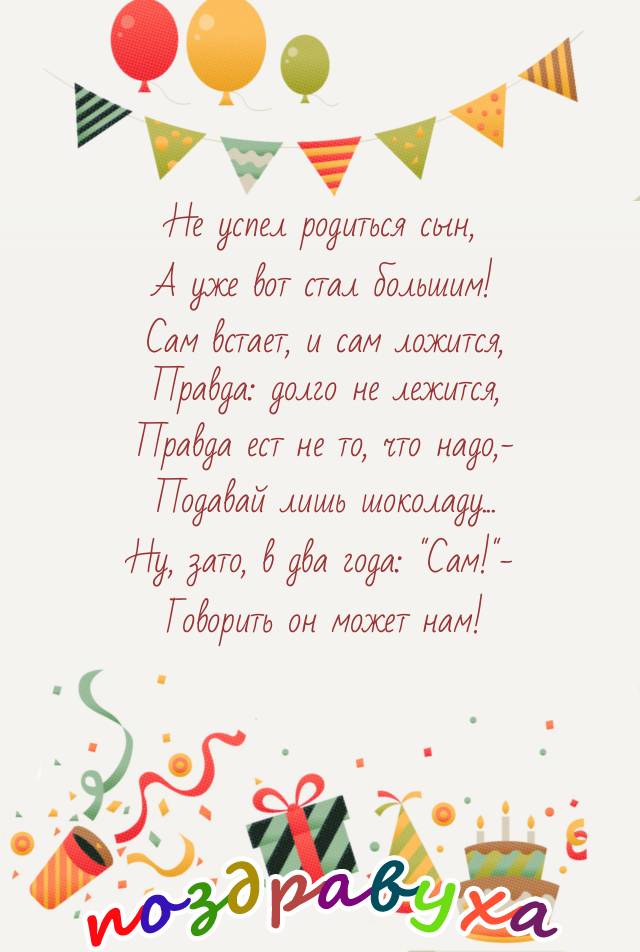 Не успел родиться сын,
А уже вот стал большим!
Сам встает, и сам ложится,
Правда: долго не лежится,
Правда ест не то, что надо,-
Подавай лишь шоколаду...
Ну, зато, в два года: "Сам!"-
Говорить он может нам!
поздравуха